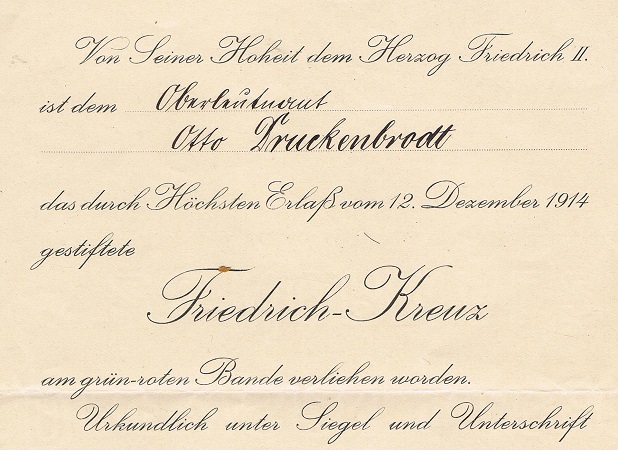 Von Seiner Hoheit dem Herzog Friedrich II.
ist dem Oberleutnant
Otto Druckenbrodt
das durch Höchsten Erlaß vom 12. Dezember 1914
gestiftete
Friedrich-Kreuz
am grün-roten Bande verliehen worden.
Urkundlich unter Siegel und Unterschrift